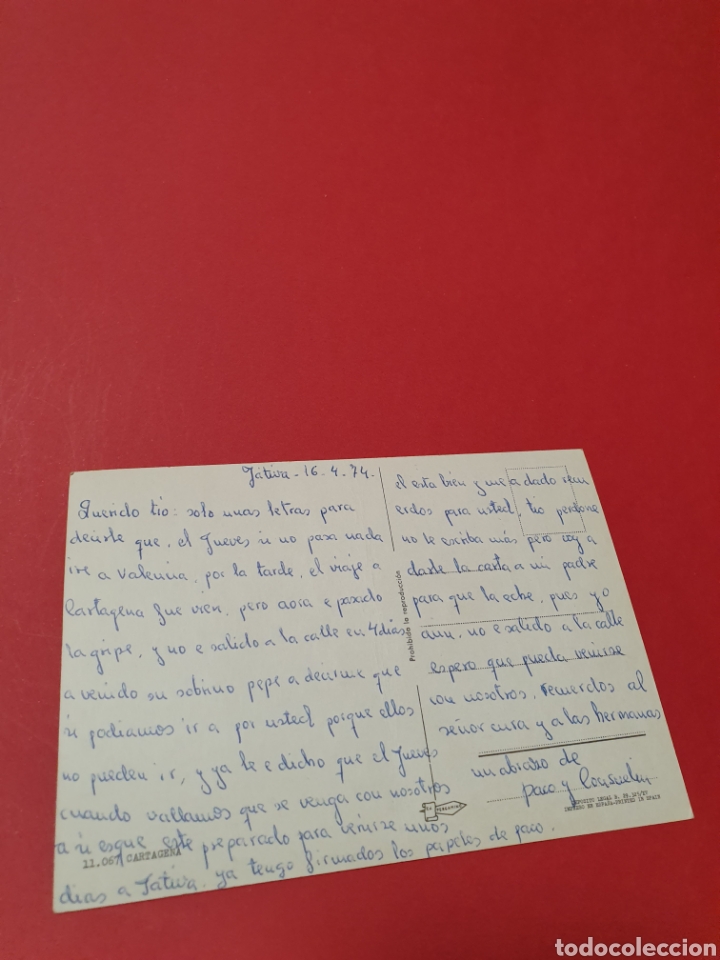 Játiva - 16-4-74-
Querido tio: solo unas letras para
decirle que, el Jueves si no pasa nada
ire a Valencia, por la tarde, el viaje a
Cartagena fue vien, pero aora e pasado
la gripe, y no e salido a la calle en 4 dias
a venido su sobrino pepe a decirme que
si podiamos ir a por usted porque ellos
no pueden ir, y ya le e dicho que el Jueves
cuando vallamos que se venga con nosotros
a si es que este preparado para venirse unos
dias a Játiva. ya tengo firmados los papeles de paco.
el esta bien y me a dado recu
erdos para usted, tio perdone
no le escriba más pero voy a
darle la carta a mi padre
para que la eche, pues yo
aun, no e salido a la calle
espero que pueda venirse
con nosotros, recuerdos al
señor cura y a las hermanas
un abrazo de
paco y Consuelin
Prohibida la reproducción
11.067 CARTAGENA
DEPOSITO LEGAL B.
IMPRESO EN ESPAÑA-PRINTED IN SPAIN
todocoleccion